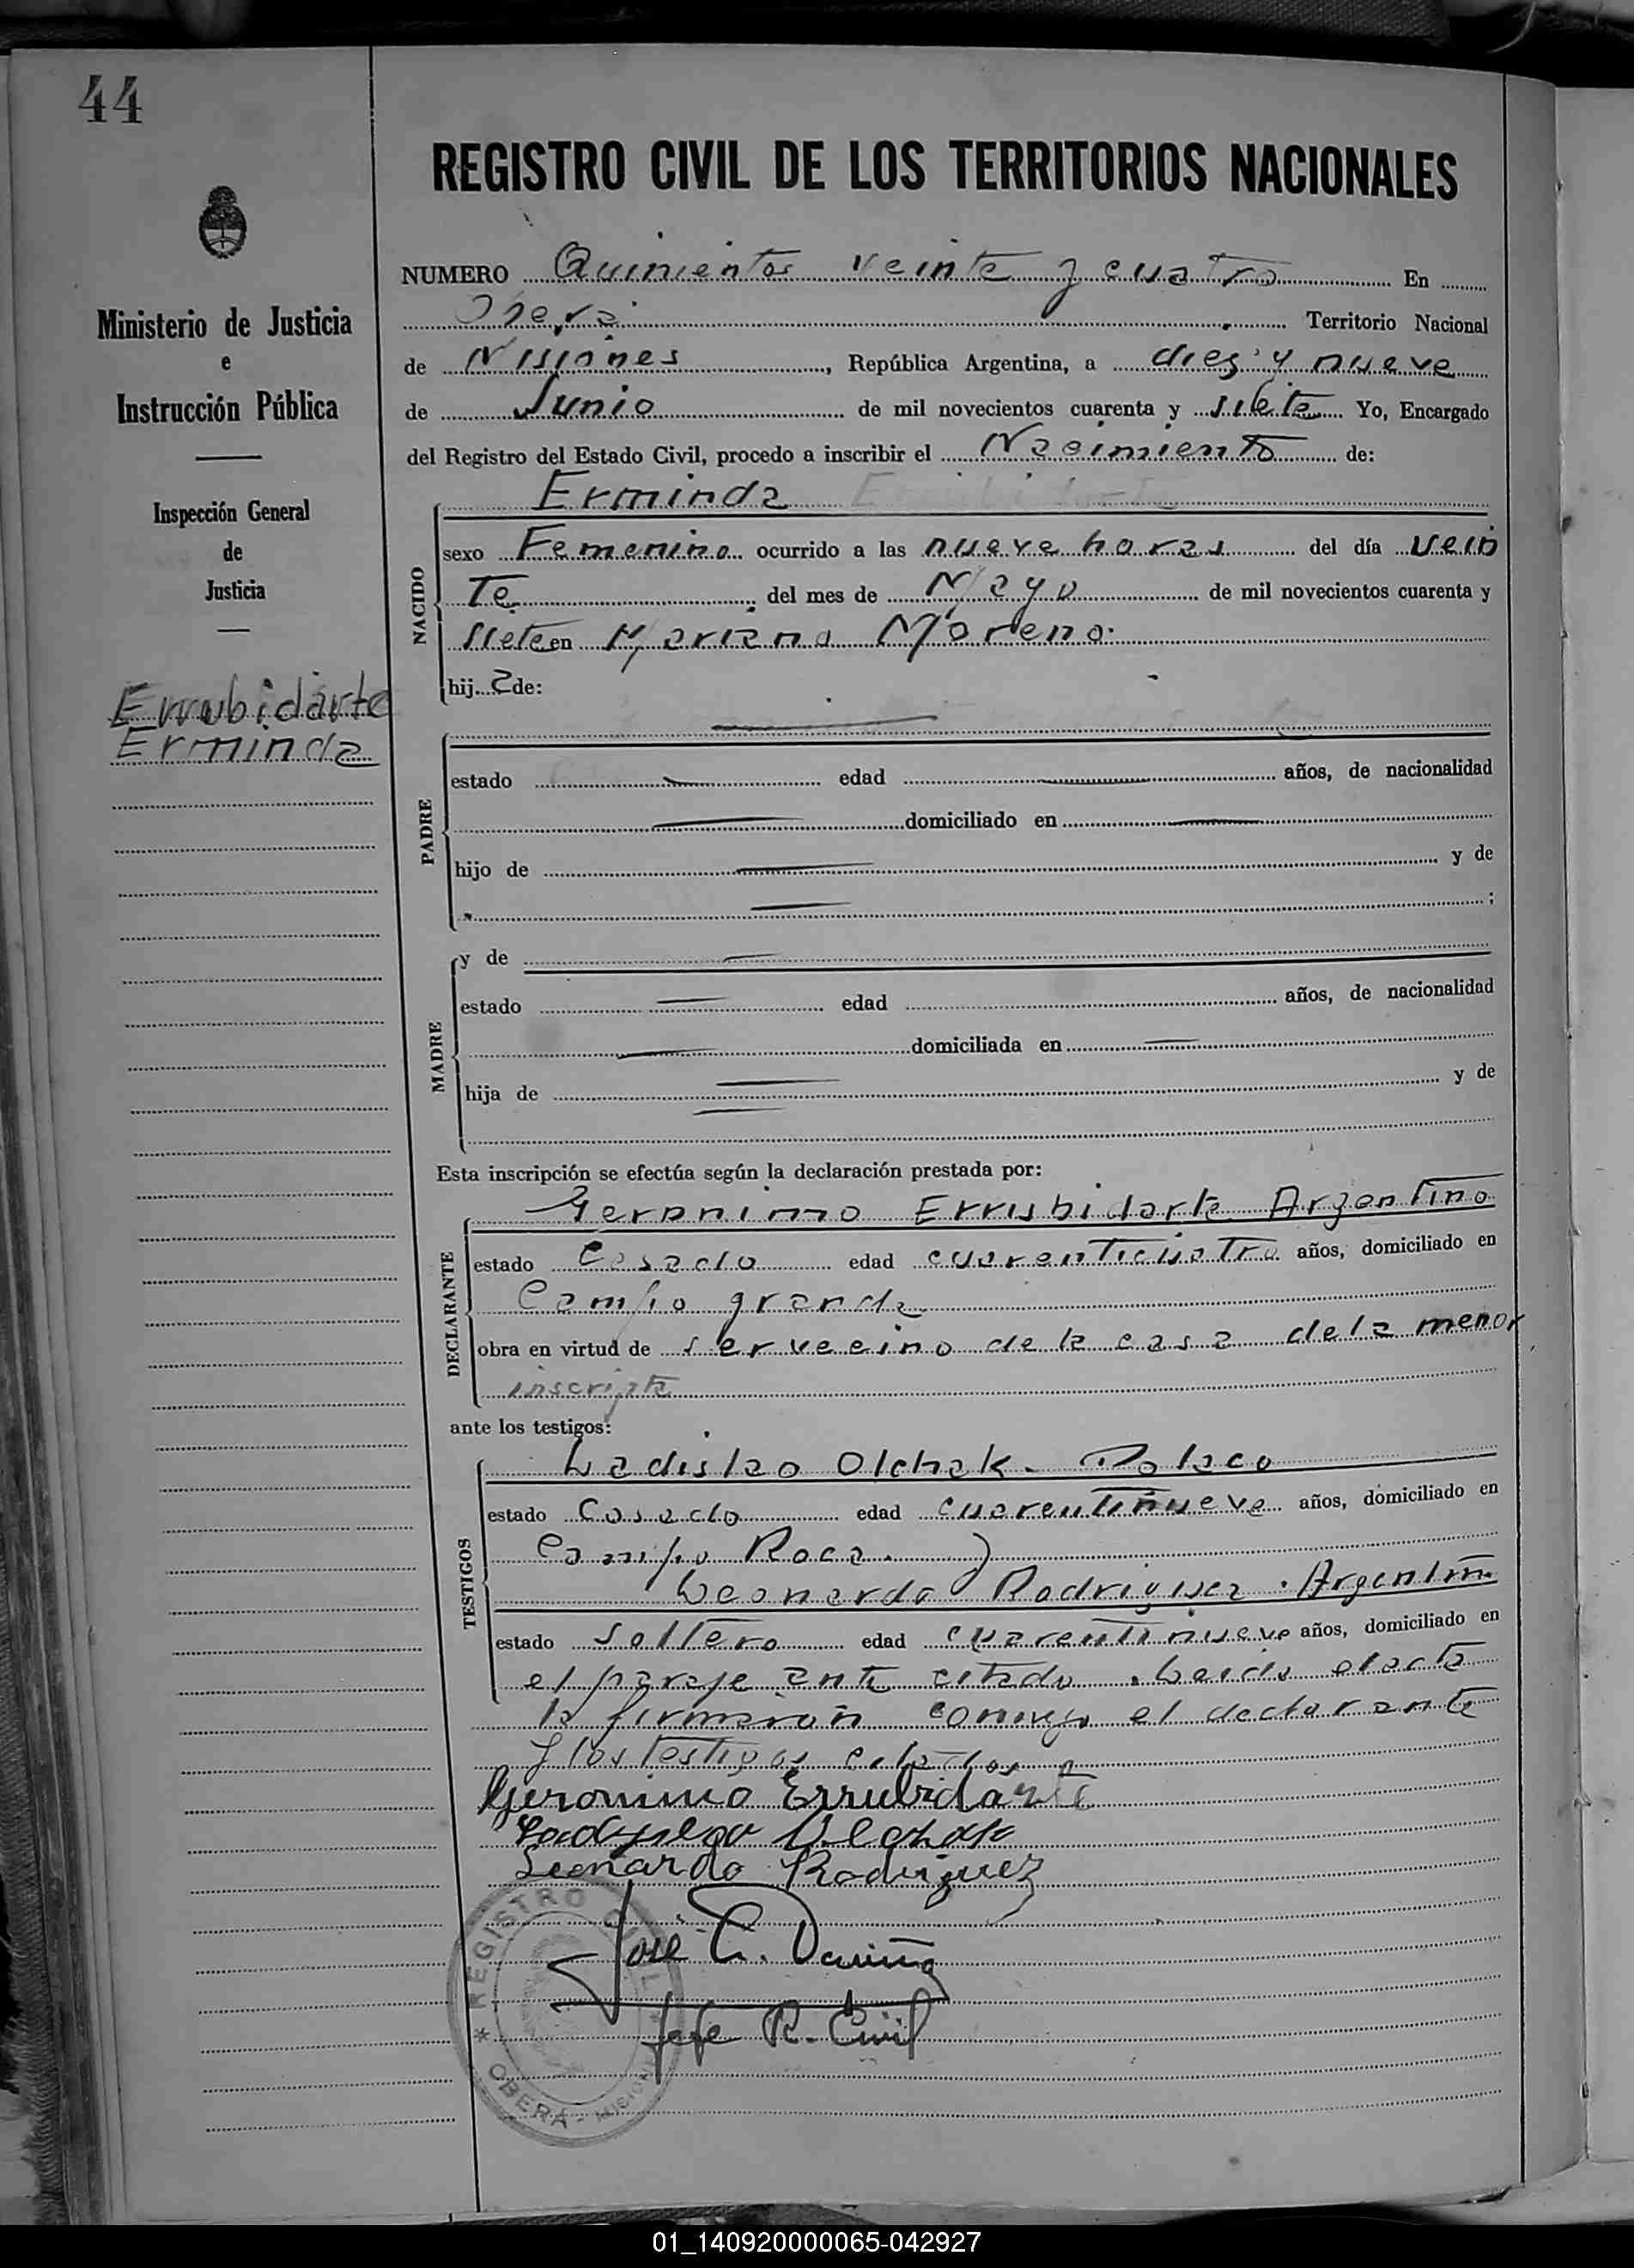 44
REGISTRO CIVIL DE LOS TERRITORIOS NACIONALES
Ministerio de Justicia
e
Instrucción Pública
Inspección General
de
Justicia
Errubidarte
Erminda
NUMERO Quinientos veinte y cuatro En
Oberá Territorio Nacional
de Misiones, República Argentina, a diez y nueve
de Junio de mil novecientos cuarenta y siete Yo, Encargado
del Registro del Estado Civil, procedo a inscribir el Nacimiento de:
Erminda
NACIDO
sexo Femenino ocurrido a las nueve horas del día vein
te del mes de Mayo de mil novecientos cuarenta y
siete en Mariano Moreno.
hij a de:
PADRE
estado edad años, de nacionalidad
domiciliado en
hijo de y de
;
MADRE
y de
estado edad años, de nacionalidad
domiciliada en
hija de y de
Esta inscripción se efectúa según la declaración prestada por:
DECLARANTE
Geronimo Errubidarte Argentino
estado Casado edad cuarenticuatro años, domiciliado en
Campo grande
obra en virtud de ser vecino de la casa de la menor
inscripta
ante los testigos:
TESTIGOS
Ladislao Olchak. Polaco
estado Casado edad cuarentinueve años, domiciliado en
Campo Roca. y
Leonardo Rodriguez. Argentino
estado soltero edad cuarentinueve años, domiciliado en
el paraje ante citado. Leida el acta
la firmaron conmigo el declarante
y los testigos citados
Geronimo Errubidarte
Leonardo Rodriguez
José C.
Jefe R. Civil
REGISTRO CIVIL
* OBERÁ - MISIONES
01_140920000065-042927